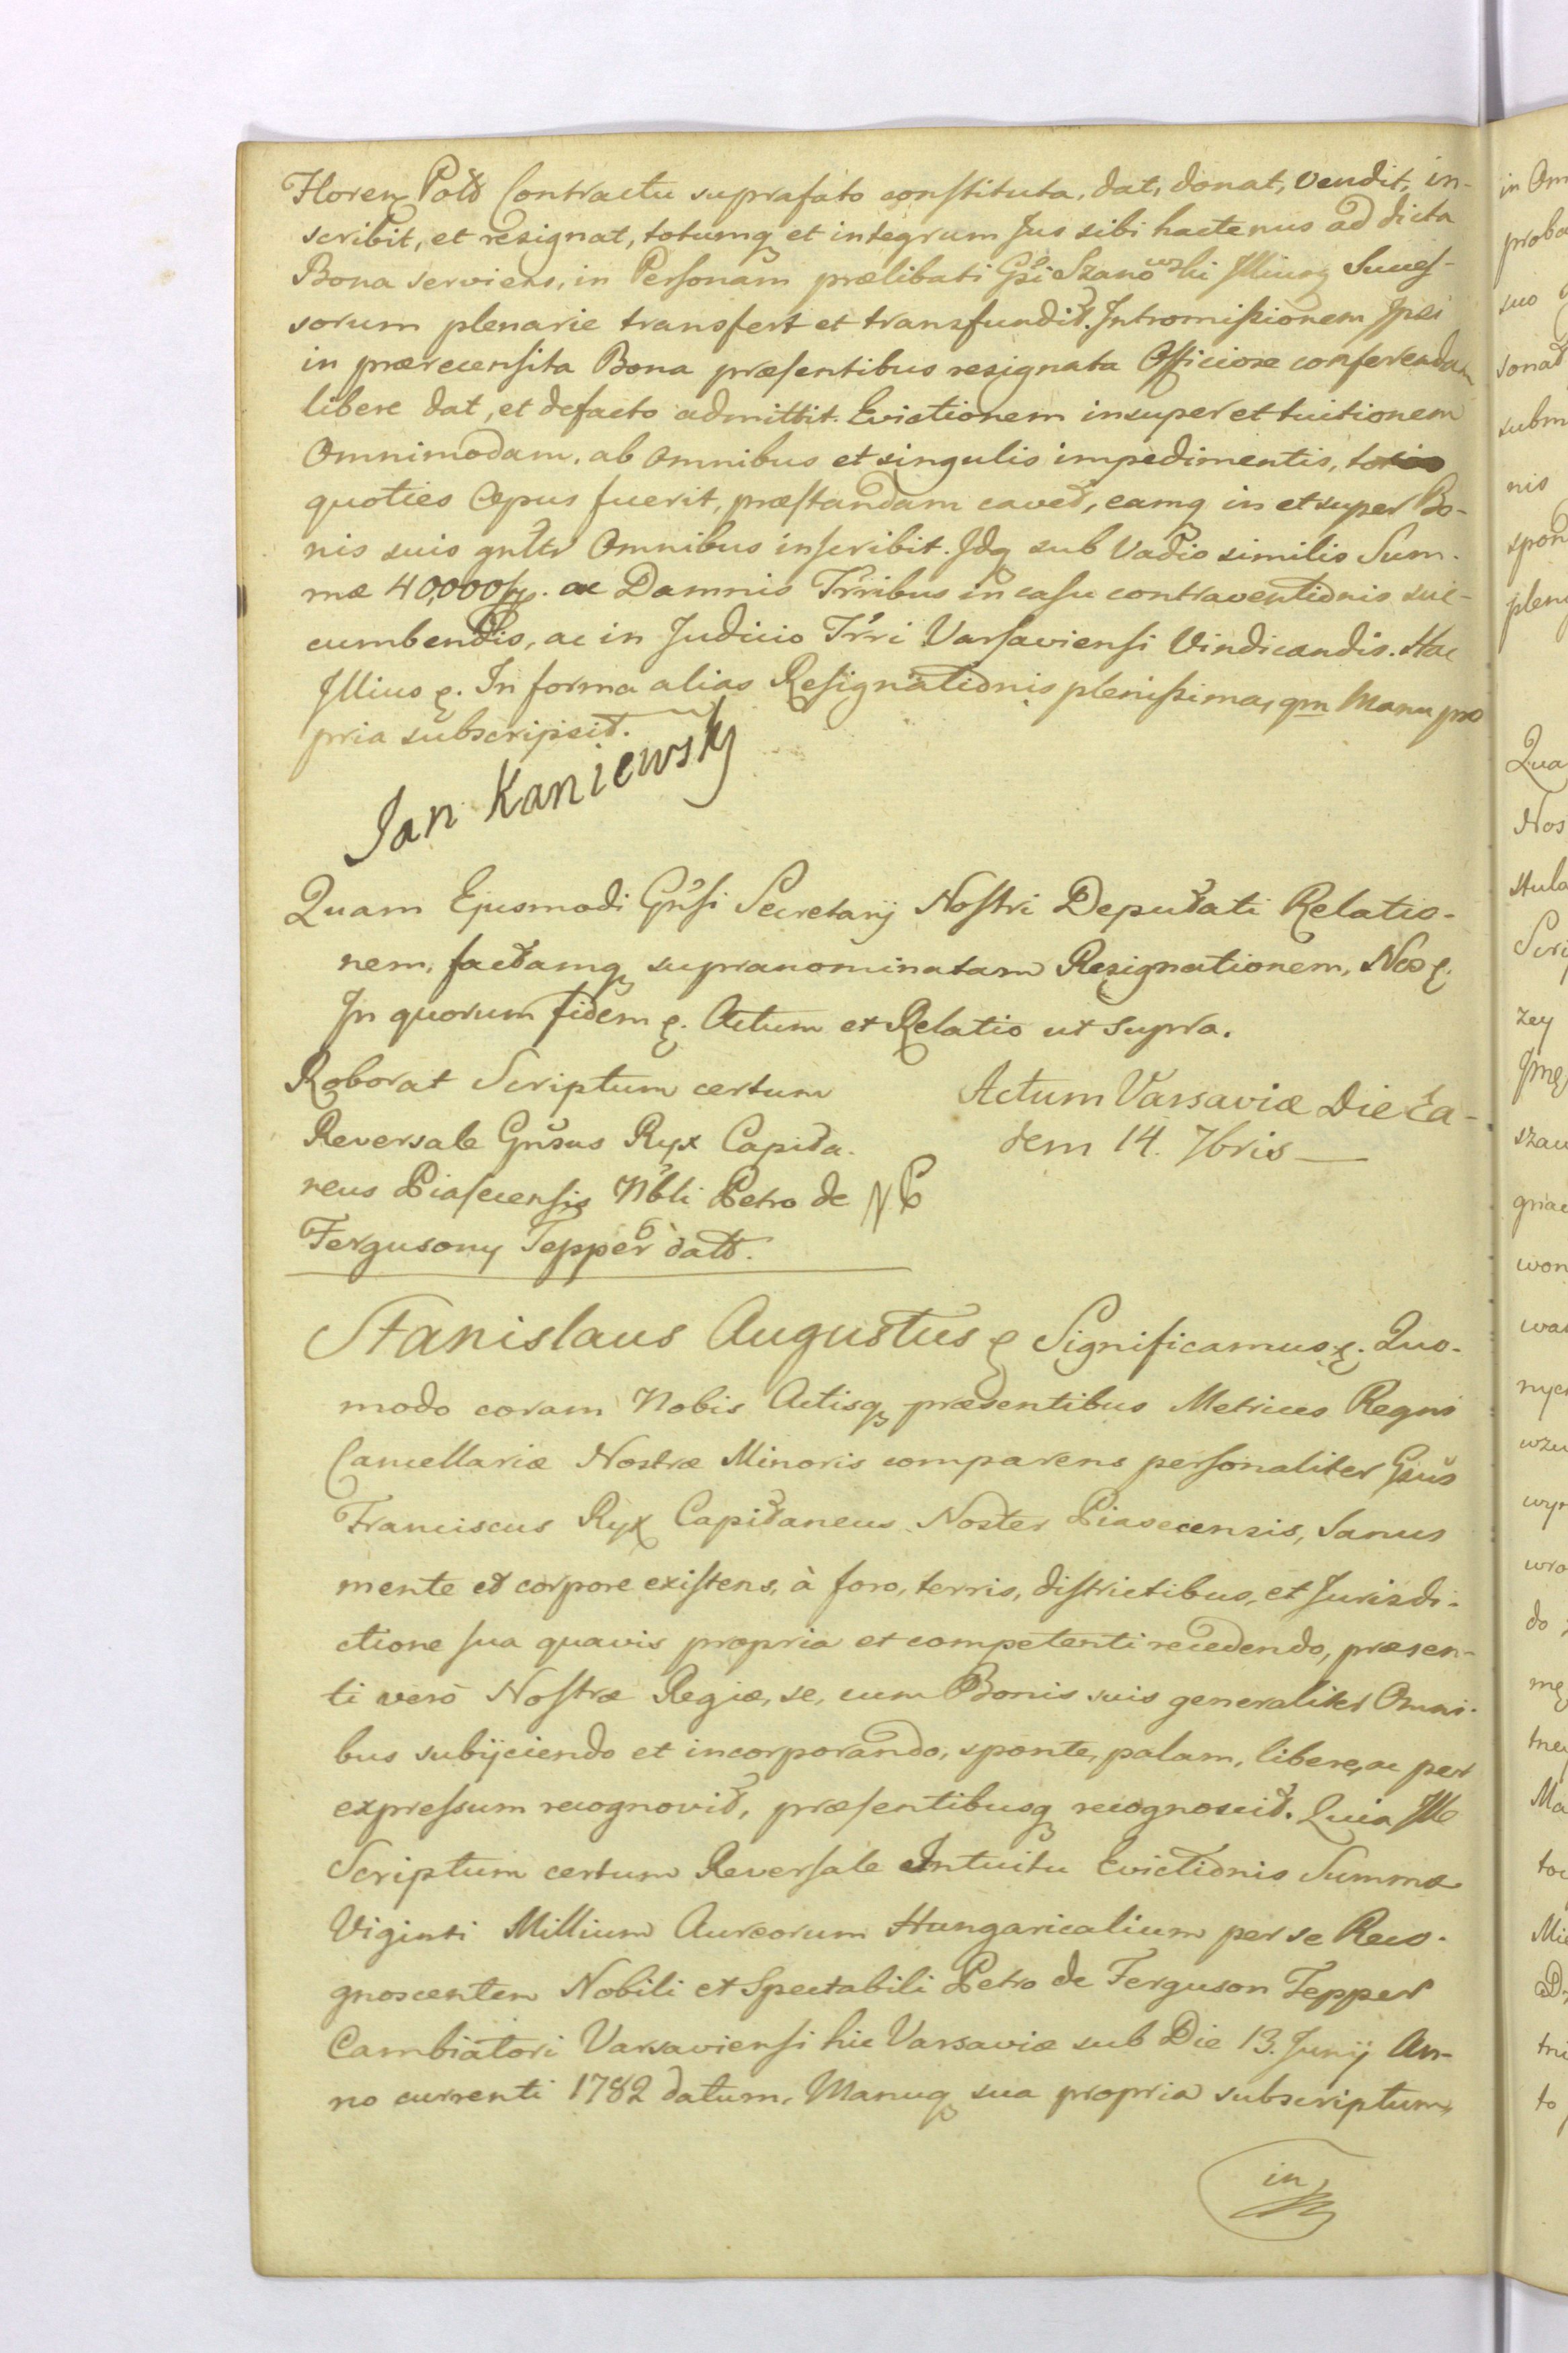 Floren Polo Contractu suprafato constituta, dat, donat, vendit, in-
scribit, et resignat, totumq et integrum Jus sibi hactenus ad dicta
Bona serviens, in Personam prælibati Gsi Szanowski Illiusq Succes-
sorum plenarie transfert et transfundit. Intromissionem Ipsi
in prærecensita Bona præsentibus resignata Officiose conferendam
libere dat, et defacto admittit. Evictionem insuper et tuitionem
Omnimodam, ab omnibus et singulis impedimentis, toties
quoties Opus fuerit, præstandam cavet, eamq in et super Bo-
nis suis gnltr Omnibus inscribit. Idq sub Vadio similis Sum-
mæ 40,000 fp. ac Damnis Trribus in casu contraventionis suc-
cumbendis, ac in Judicio Trri Varsaviensi Vindicandis. Hac
Illius ę. In forma alias Resignationis plenissima, qm Manu pro
pria subscripsit.
Jan Kaniewsky
Quam Ejusmodi Gnsi Secretarij Nostri Deputati Relatio-
nem, factamq supranominatam Resignationem, Nos ę.
In quorum fidem ę. Actum et Relatio ut supra.
Roborat Scriptum certum
Reversale Gnsus Ryx Capita-
neus Piasecensis Nbli Petro de
Fergusony Tepper datt.
Actum Varsaviæ Die Ea-
dem 14. 7bris
Stanislaus Augustus ę Significamus ę. Quo-
modo coram Nobis Actisq præsentibus Metrices Regni
Cancellariæ Nostræ Minoris comparens personaliter Gsus
Franciscus Ryx Capitaneus Noster Piasecensis, Sanus
mente et corpore existens, à foro, terris, districtibus, et Jurisdi-
ctione sua quavis propria et competenti recedendo, præsen-
ti verò Nostræ Regiæ, se, cum Bonis suis generaliter Omni-
bus subijciendo et incorporando, sponte, palam, libere, ac per
expressum recognovit, præsentibusq recognoscit. Quia Ille
Scriptum certum Reversale Intuitu Evictionis Summæ
Viginti Millium Aureorum Hungaricalium per se Reco-
gnoscentem Nobili et Spectabili Petro de Ferguson Tepper
Cambiatori Varsaviensi hic Varsaviæ sub Die 13. Junij An-
no currenti 1782 datum, Manuq sua propria subscriptum,
in